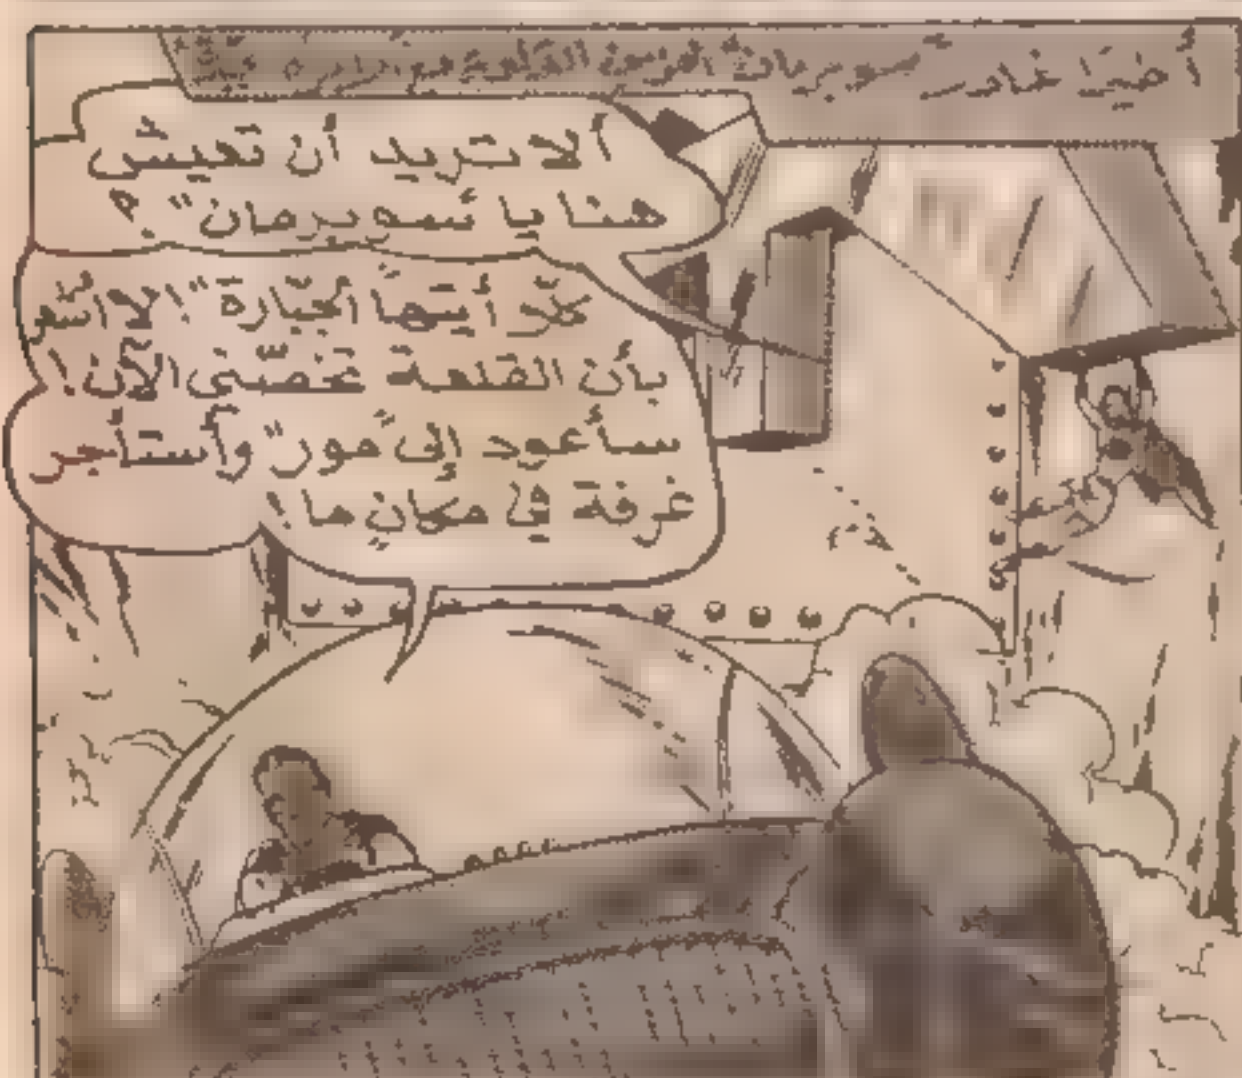 أخيرًا غادر سوبرمان القلعة
ألا تريد أن تعيش
هنا يا "سوبرمان"؟
أيتها الجبّارة! لا
بأن القلعة تخصّني الآن!
سأعود إلى "مور" وأستأجر
غرفة في مكانٍ ما!